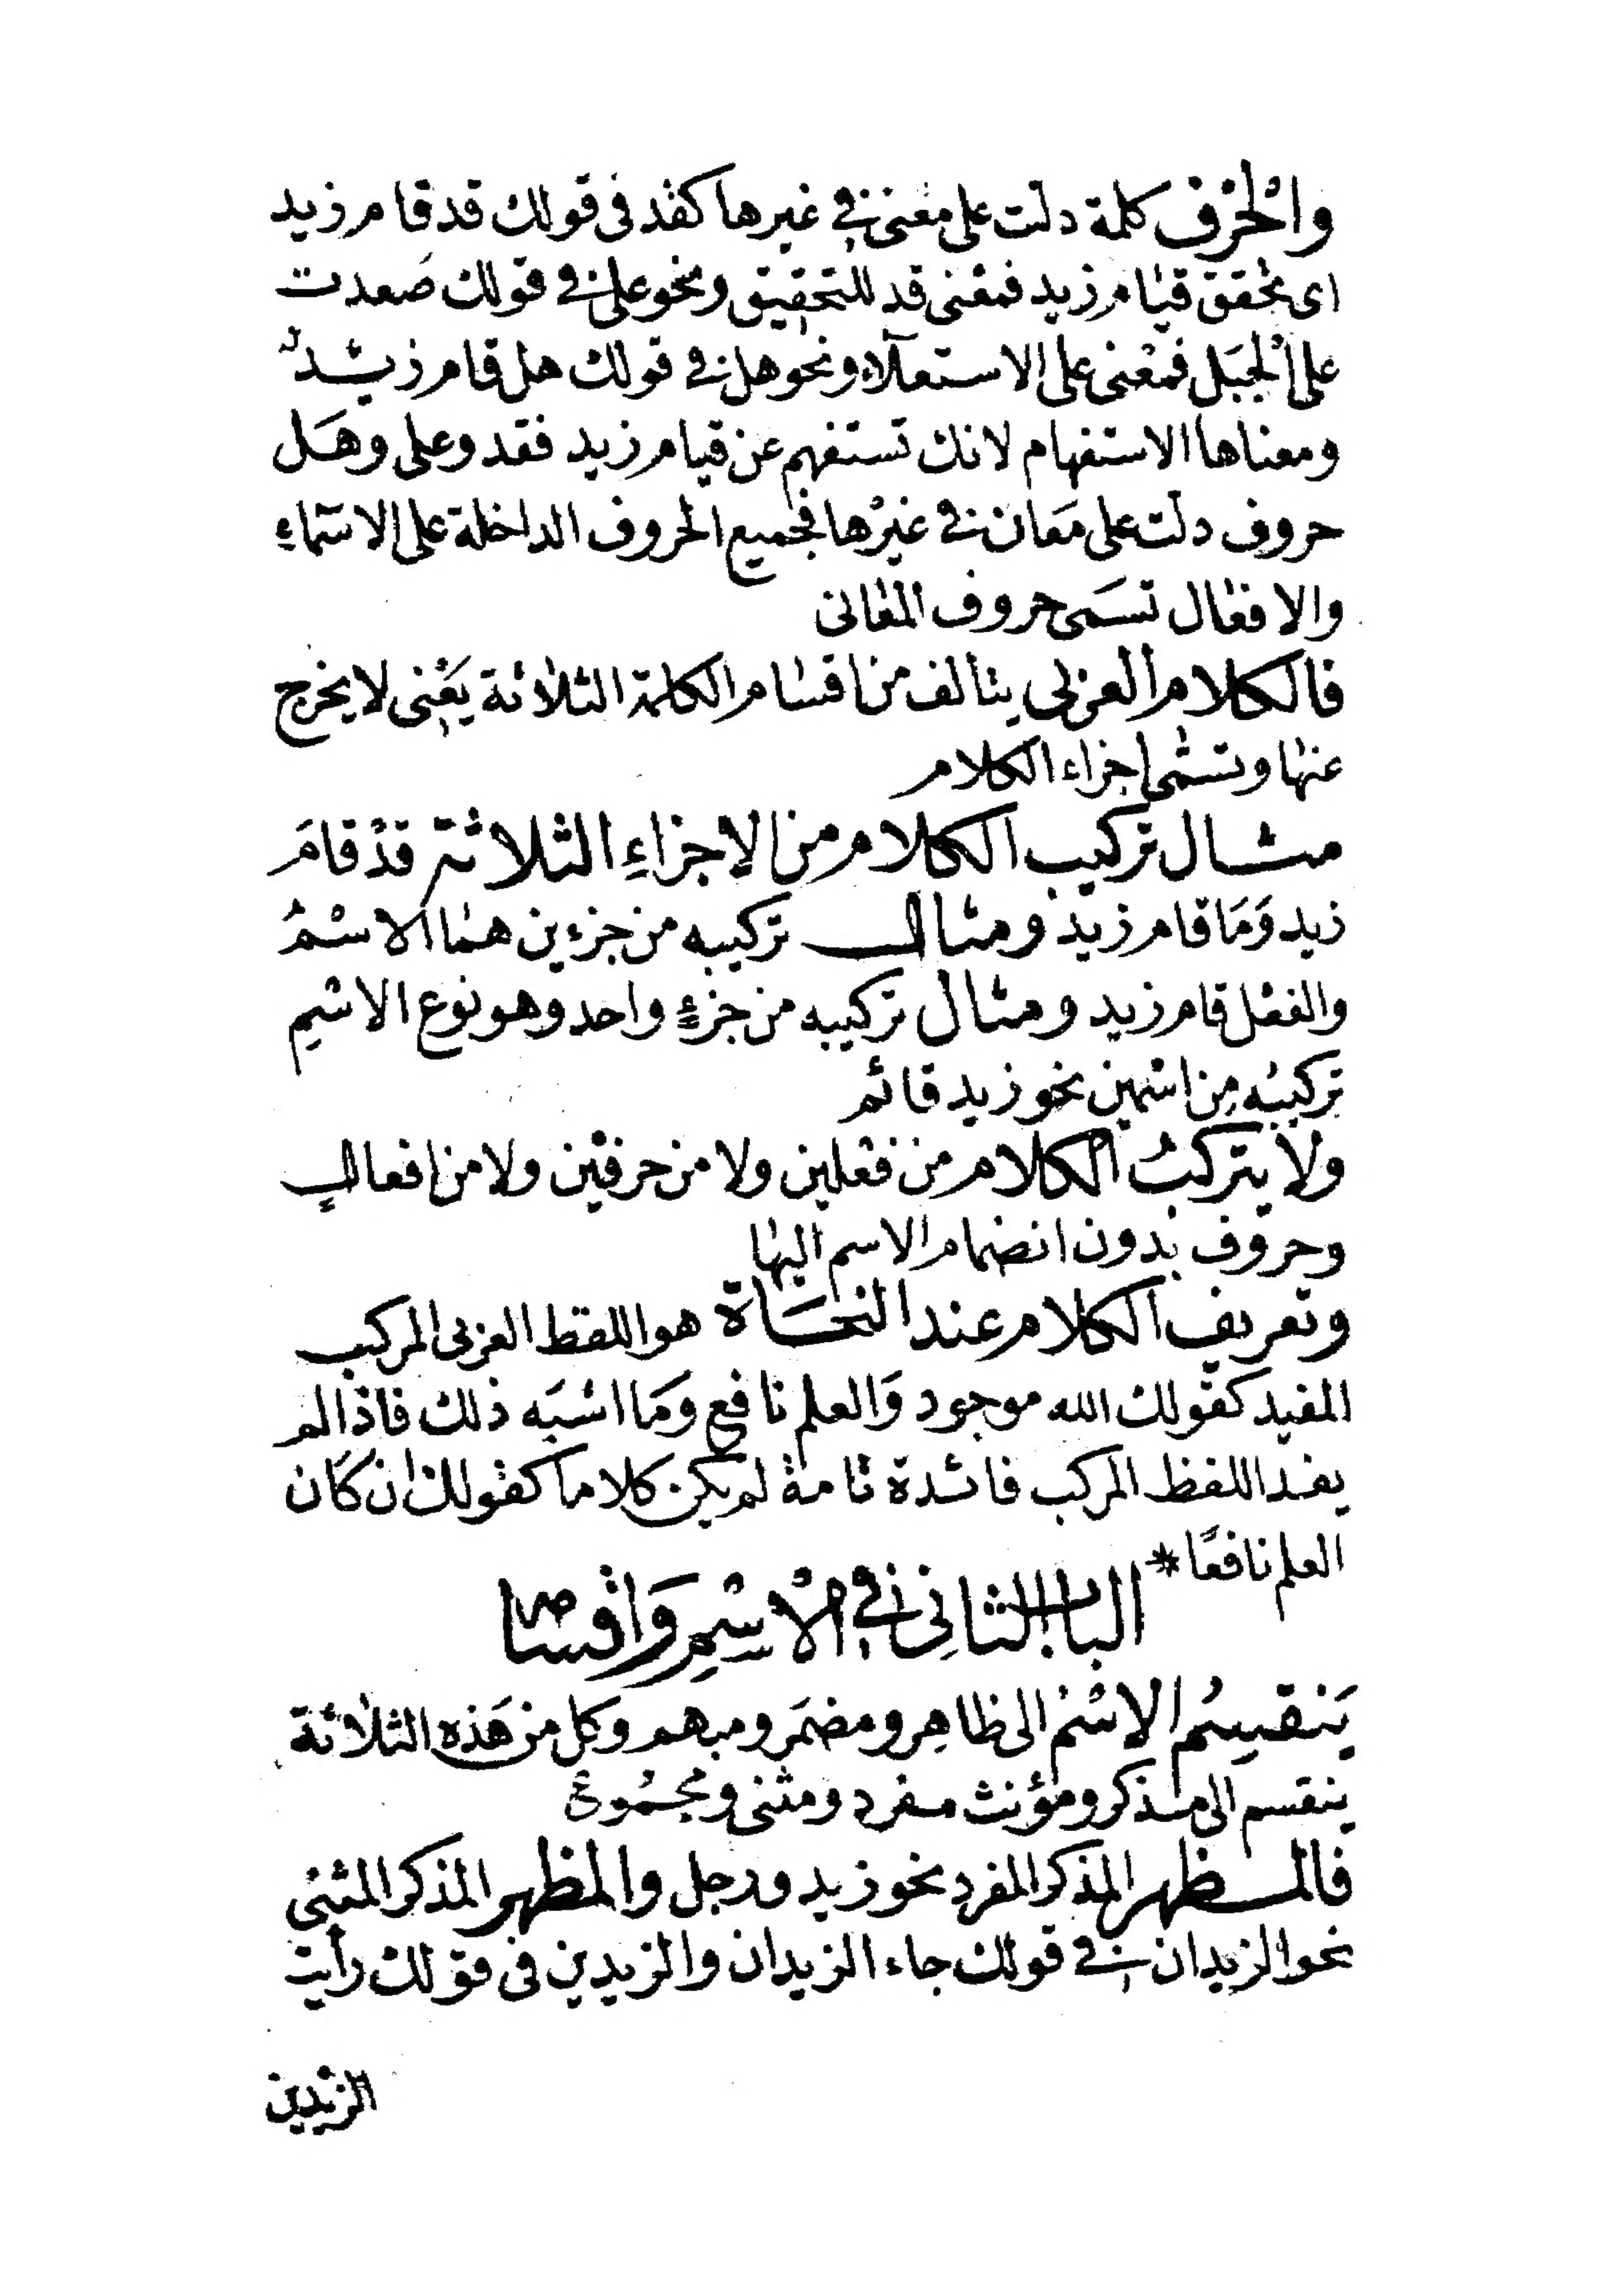 والْحَرْف كلمة دلت على معنى في غيرها كقد في قولك قد قام زيد
اى تحقق قيام زيد فمعنى قد للتحقيق ونحو على في قولك صَعدت
على الْجبَل فمعْنى على الاستعلاء ونحو هل في قولك هل قام زيد
ومعناها الاستفهام لانك تستفهم عن قيام زيد فقد وعلى وهَل
حروف دلت على مَعان في غيرها فجميع الحروف الداخلة على الاسماءِ
والافعال تسَمى حروف المعانى
فالكلام العربى يتالف من اقسام الكلمة الثلاثة يَعْنى لا يخرج
عنها وتسمى اجزاء الكلام
مثال تركيب الكلام من الاجزاءِ الثلاثة قدْ قامَ
زيد وَمَا قام زيد ومثال تركيبه من جزءين هما الاسْمُ
والفعل قام زيد ومثال تركيبه من جزءٍ واحد وهو نوع الاسْمِ
تركيبُه مِن اسْمين نحو زيد قائم
ولا يتركبُ الكلام من فعلين ولا من حرفين ولا من افعالٍ
وحروف بدون انضمام الاسم اليها
وتعريف الكلام عند النحَاة هو اللفظ العربى المركب
المفيد كقولك الله موجود وَالعلم نافع وَمَا اشبَه ذلك فاذا لم
يفد اللفظ المركب فائدة تامة لم يكن كلاما كقولك ان كان
العلم نافعًا *
الباب الثانِى في الْاسْمِ وَاقْسامه
يَنقسِمُ الاسْمُ الى ظاهِر ومضمَر ومبهم وكل من هَذه الثلاثة
ينقسم الى مذكر ومؤنث مفرد ومثنى ومجمُوع
فالمظهر المذكر المفرد نحو زيد ورجل والمظهر المذكر المثنى
نحو الزيدان في قولك جاء الزيدان والزيدين في قولك رأيت
الزيدين